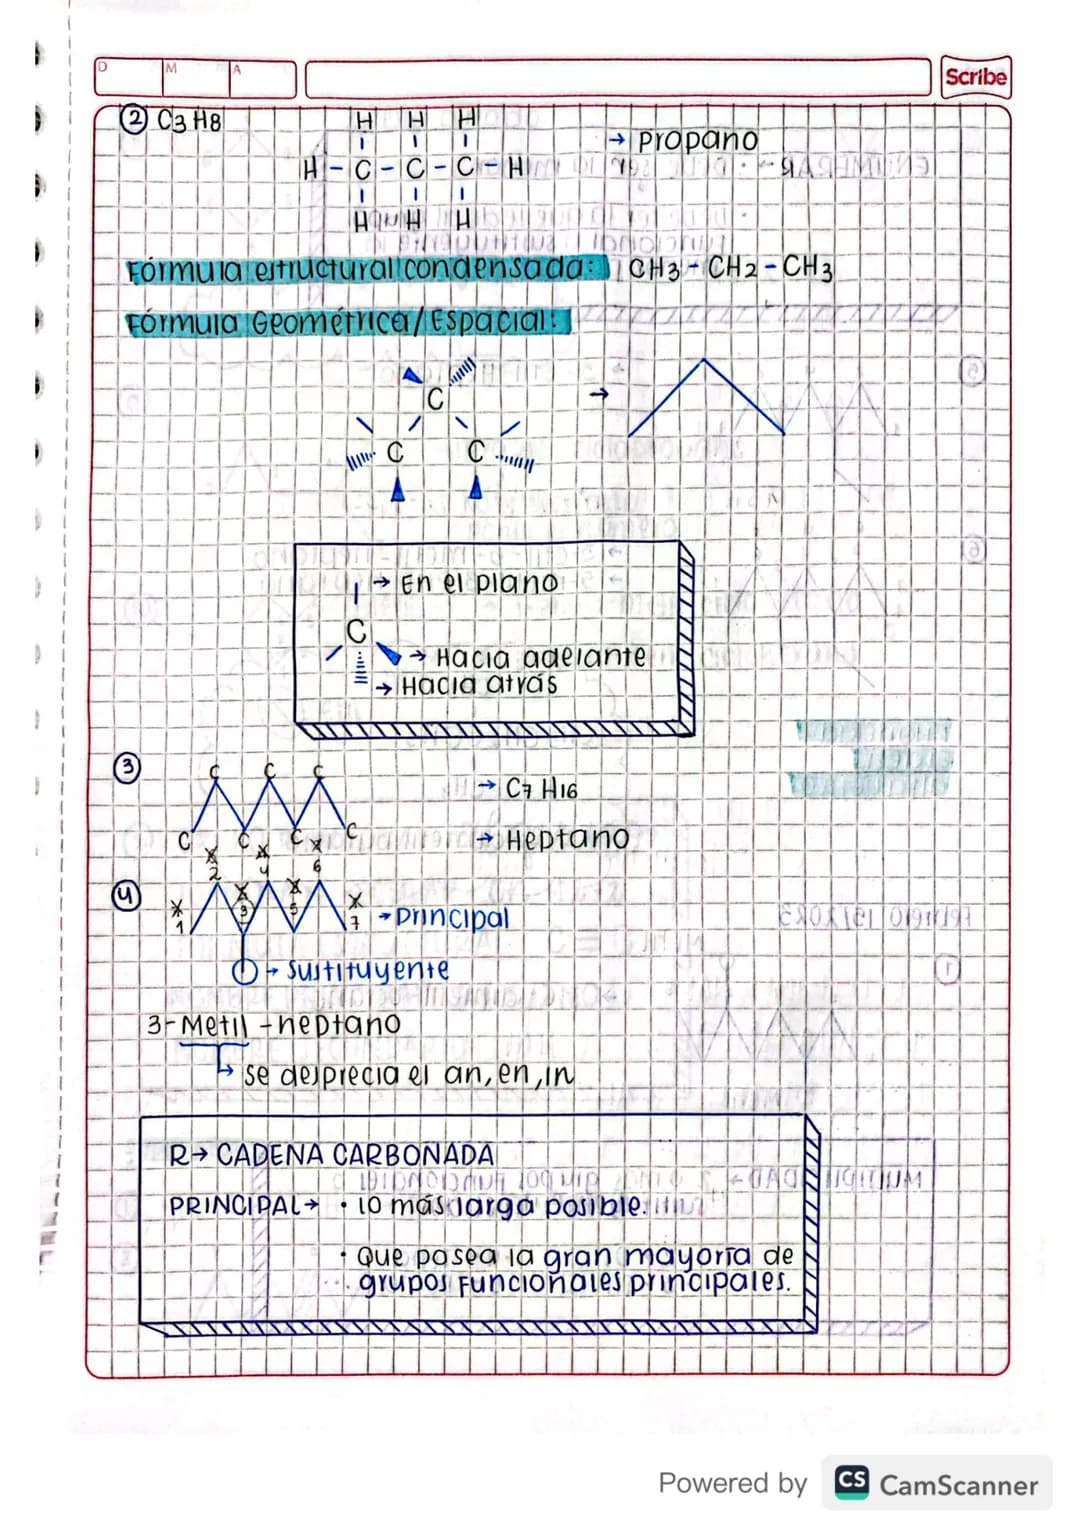 D M A
Scribe
② C3 H8
H H H
H - C - C - C - H
H H H
→ Propano
Fórmula estructural condensada: CH3 - CH2 - CH3
Fórmula Geométrica/Espacial:
C
→
C C
→ En el plano
C
→ Hacia adelante
→ Hacia atrás
③
C C C
C C C C
→ C7 H16
→ Heptano
④
2 4 6
1 3 5 7
→ Principal
→ Sustituyente
3-Metil -heptano
↳ se desprecia el an, en, in
R→ CADENA CARBONADA
PRINCIPAL→ • lo más larga posible.
• Que posea la gran mayoría de
grupos Funcionales principales.
Powered by CS CamScanner